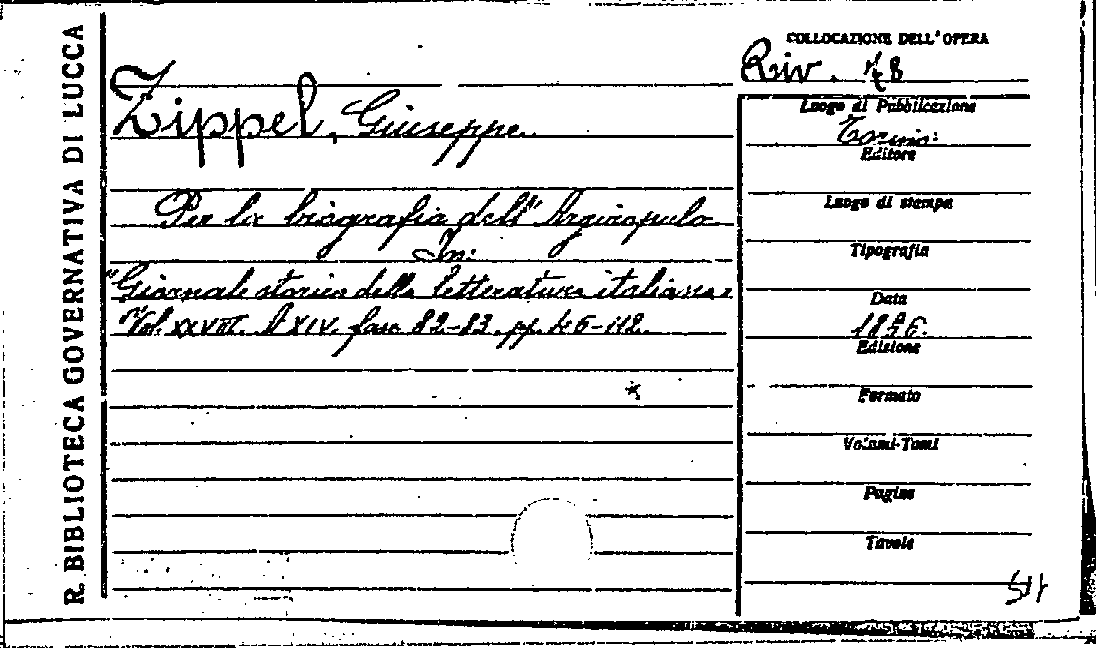 R. BIBLIOTECA GOVERNATIVA DI LUCCA
COLLOCAZIONE DELL'OPERA
Riv. 78
Zippel, Giuseppe.
Luogo di Pubblicazione
Torino:
Editore
Per la biografia dell'Argiropulo
Luogo di stampa
In:
Tipografia
"Giornale storico della letteratura italiana"
Data
Vol. XXVIII. A XIV. fasc 82-83. pp.
1896.
Edizione
Formato
Volumi-Tomi
Pagine
Tavole